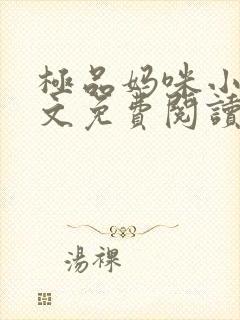 極品妈咪小
文免費閱讀
湯裸